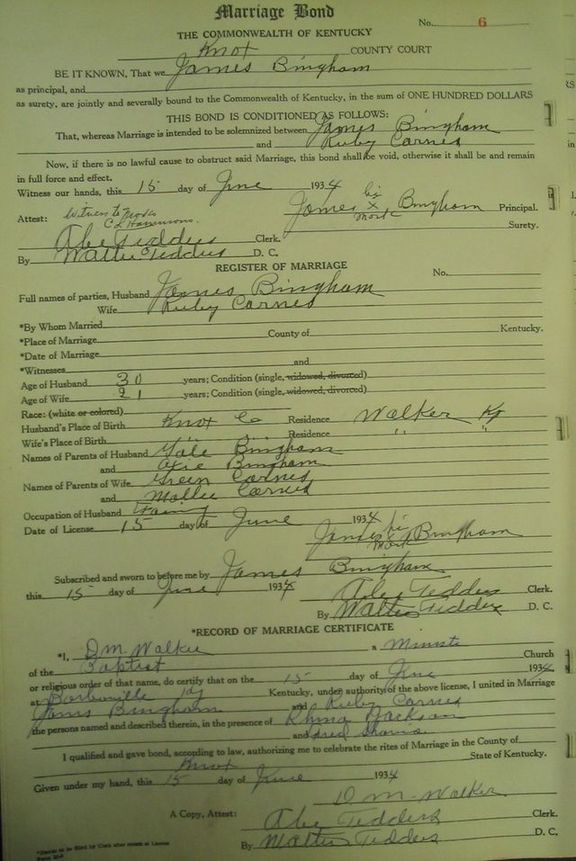 Marriage Bond
No. 6
THE COMMONWEALTH OF KENTUCKY
Knox COUNTY COURT
BE IT KNOWN, That we James Bingham
as principal, and
as surety, are jointly and severally bound to the Commonwealth of Kentucky, in the sum of ONE HUNDRED DOLLARS
THIS BOND IS CONDITIONED AS FOLLOWS:
That, whereas Marriage is intended to be solemnized between James Bingham
and Ruby Carnes
Now, if there is no lawful cause to obstruct said Marriage, this bond shall be void, otherwise it shall be and remain
in full force and effect.
Witness our hands, this 15 day of June 1934
James his x mark Bingham Principal.
Attest: Witness to mark Surety.
Abe Tedders Clerk.
By Walter Tedders D. C.
REGISTER OF MARRIAGE
No.
Full names of parties, Husband James Bingham
Wife Ruby Carnes
*By Whom Married
*Place of Marriage County of Kentucky.
*Date of Marriage
*Witnesses and
Age of Husband 30 years; Condition (single, widowed, divorced)
Age of Wife 21 years; Condition (single, widowed, divorced)
Race: (white or colored)
Husband's Place of Birth Knox Co Residence Walker Ky
Wife's Place of Birth " " Residence " "
Names of Parents of Husband Bingham
and Bingham
Names of Parents of Wife Green Carnes
and Mollie Carnes
Occupation of Husband
Date of License 15 day of June 1934
James his mark Bingham
Subscribed and sworn to before me by James Bingham
this 15 day of June 1934
Abe Tedders Clerk.
By Walter Tedders D. C.
*RECORD OF MARRIAGE CERTIFICATE
*I, D M Walker a Minister
of the Baptist Church
or religious order of that name, do certify that on the 15 day of June 1934
at Barbourville Ky Kentucky, under authority of the above license, I united in Marriage
James Bingham and Ruby Carnes
the persons named and described therein, in the presence of Jackson
and
I qualified and gave bond, according to law, authorizing me to celebrate the rites of Marriage in the County of
Knox State of Kentucky.
Given under my hand, this 15 day of June 1934
D. M. Walker
A Copy, Attest: Abe Tedders Clerk.
By Walter Tedders D. C.